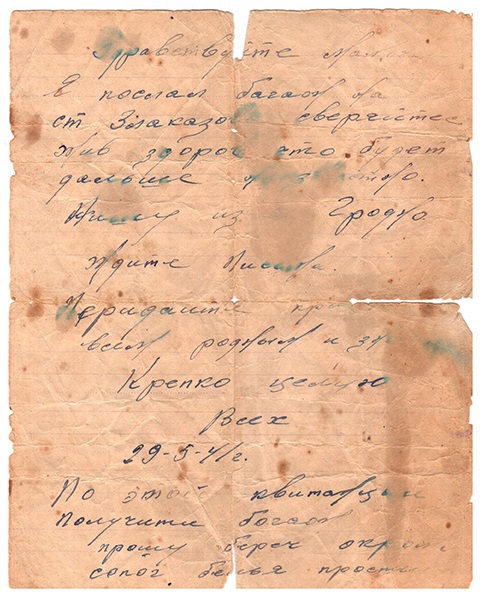 Здравствуйте мама
Я послал багаж на
ст Злаказово сверяйтес
жив здоров что будет
дальше неизвестно.
Пишу из Гродно.
Ждите Писма.
Перидайте
всем родным и
Крепко целую
Всех
29-5-41г.
По этой квитанции
Получити богаж
прошу береч
сапог. белья просты